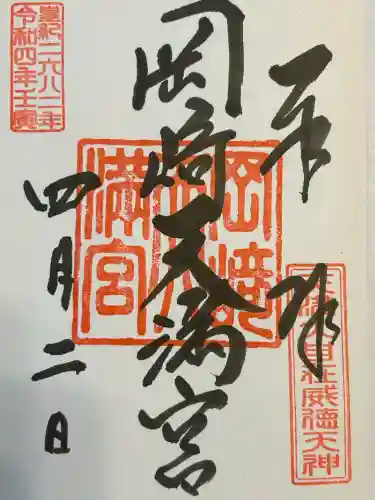 奉拝
岡崎天満宮
四月二日
皇紀二六八二年
令和四年壬寅
岡崎天満宮
自在威徳天神